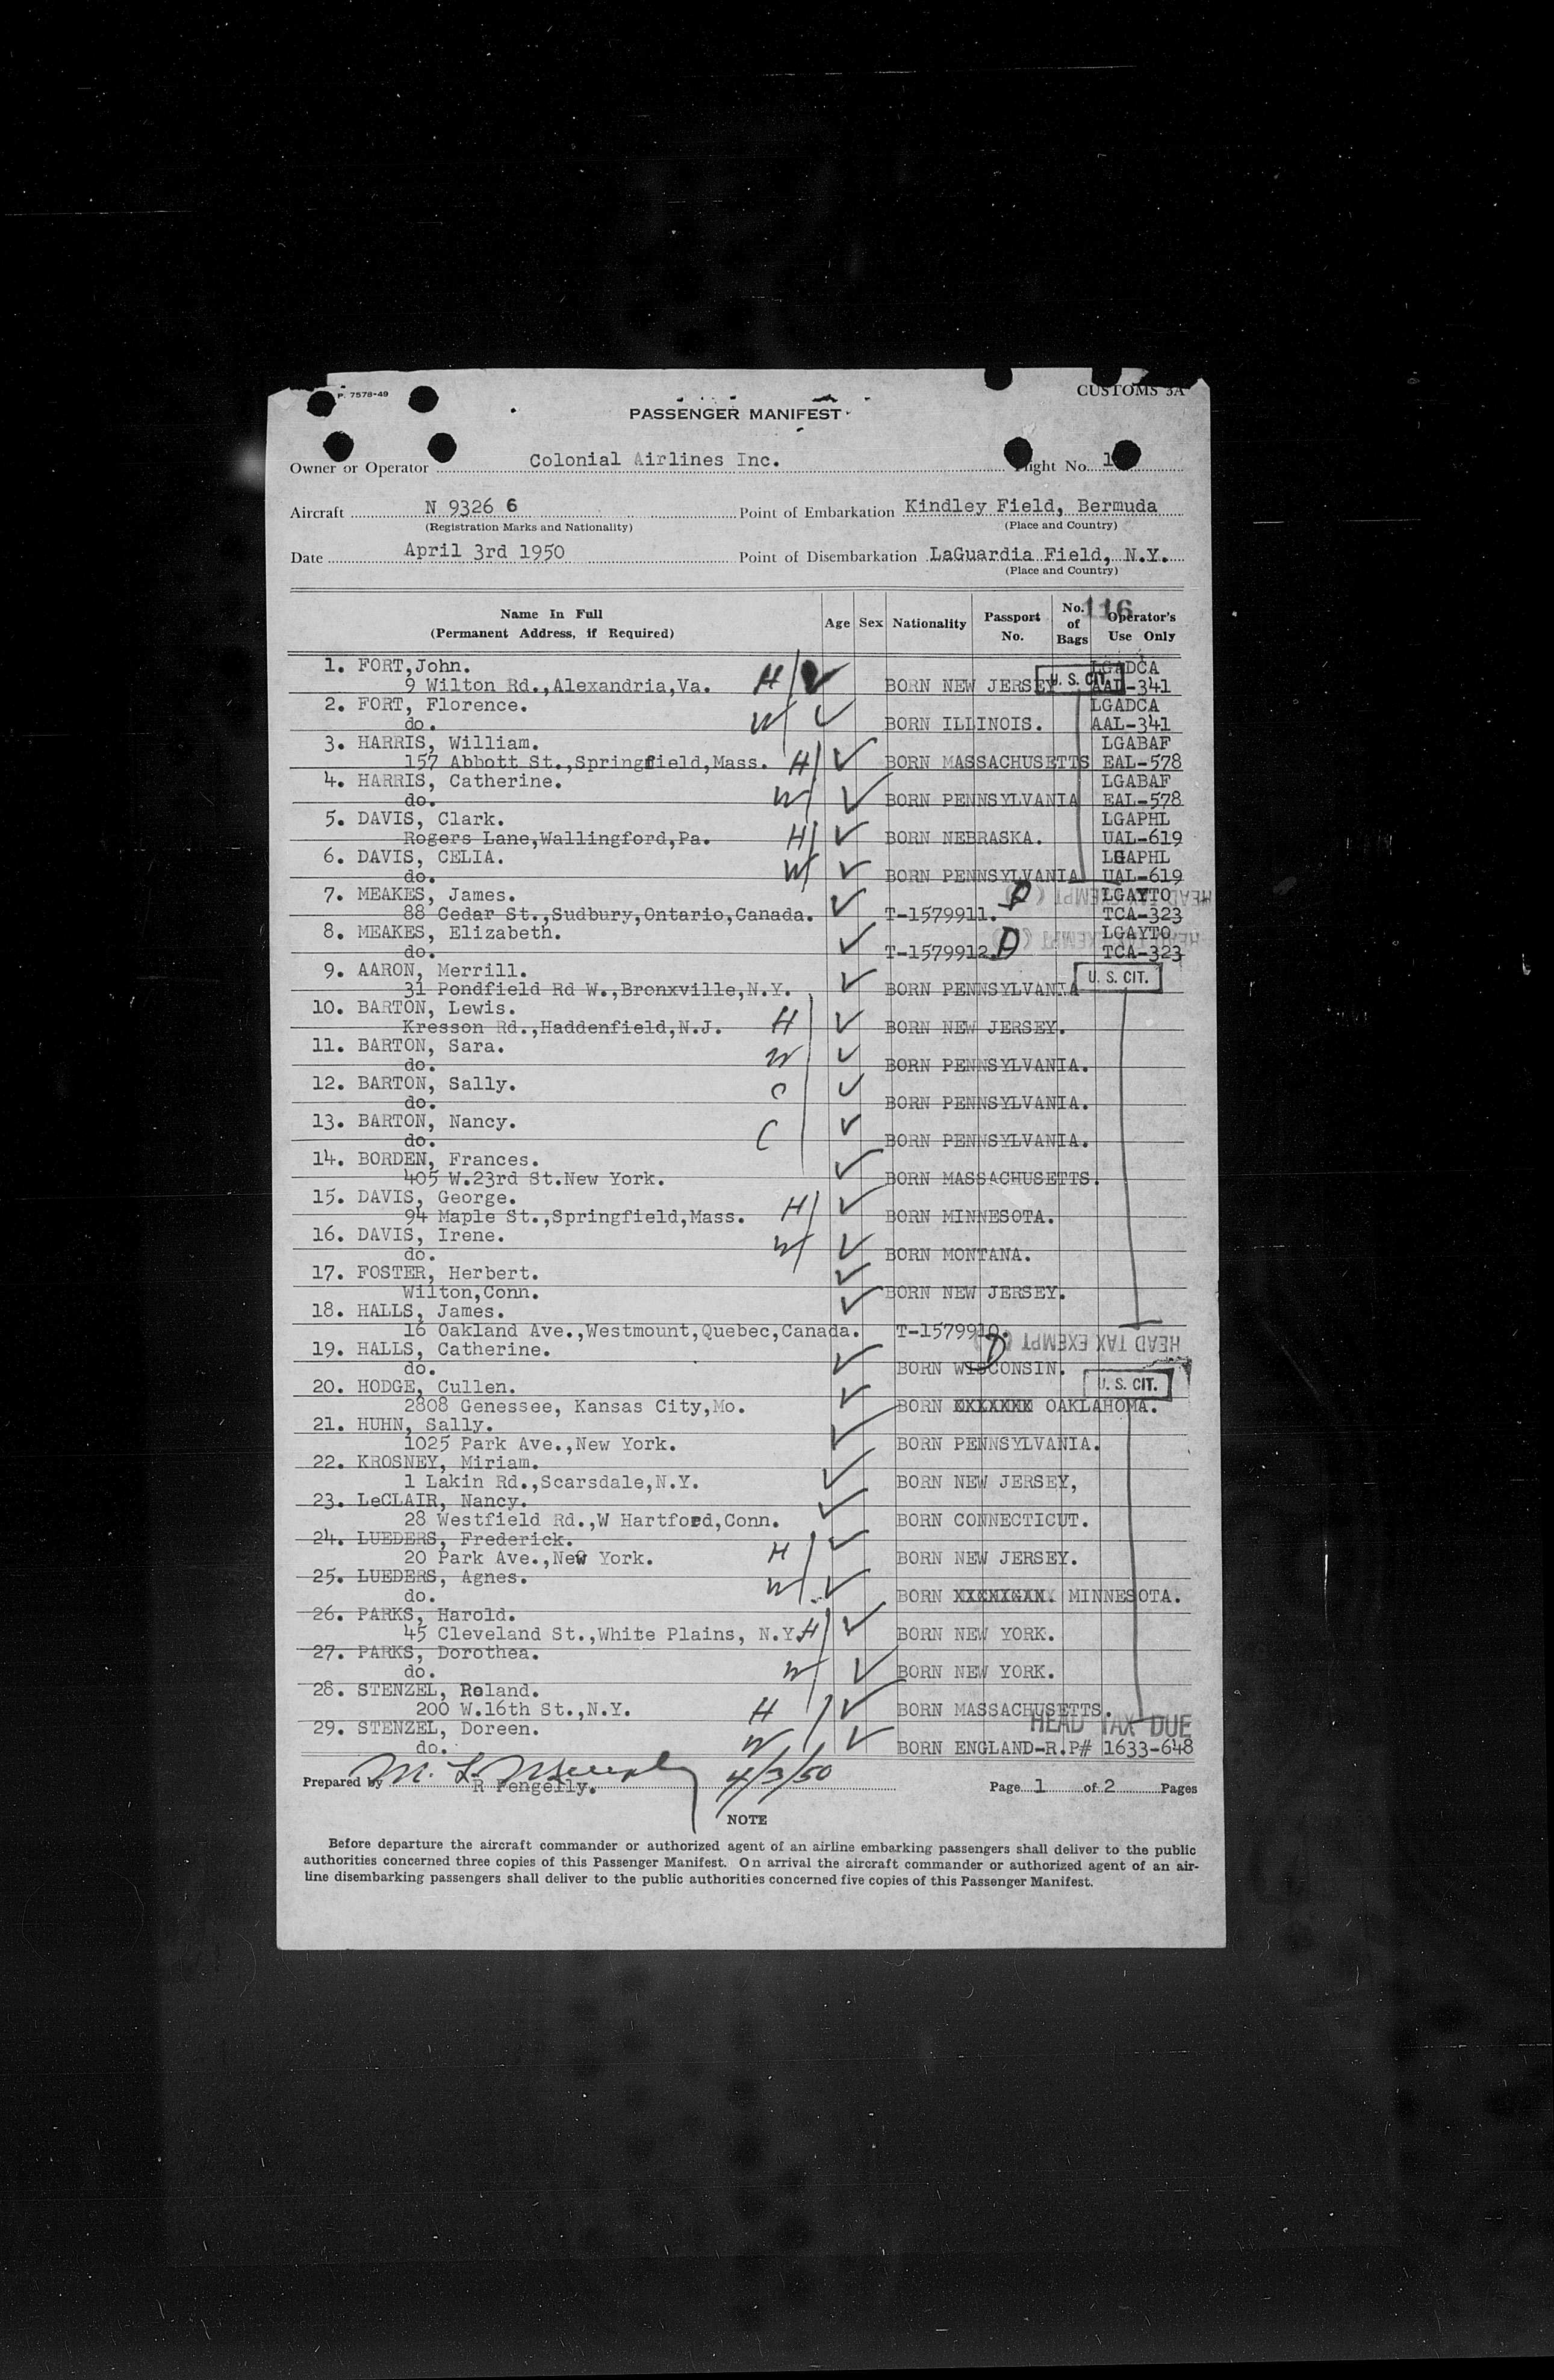 P. 7578-49
CUSTOMS 3A
PASSENGER MANIFEST
Owner or Operator Colonial Airlines Inc. Flight No. 1
Aircraft N 9326 6 Point of Embarkation Kindley Field, Bermuda
(Registration Marks and Nationality) (Place and Country)
Date April 3rd 1950 Point of Disembarkation LaGuardia Field, N.Y.
(Place and Country)
116
Name In Full Age Sex Nationality Passport No. No. of Bags Operator's Use Only
(Permanent Address, if Required)
1. FORT,John. LGADCA
9 Wilton Rd.,Alexandria,Va. H BORN NEW JERSEY U. S. CIT. AAL-341
2. FORT, Florence. LGADCA
do. W BORN ILLINOIS. AAL-341
3. HARRIS, William. LGABAF
157 Abbott St.,Springfield,Mass. H BORN MASSACHUSETTS EAL-578
4. HARRIS, Catherine. LGABAF
do. W BORN PENNSYLVANIA EAL-578
5. DAVIS, Clark. LGAPHL
Rogers Lane,Wallingford,Pa. H BORN NEBRASKA. UAL-619
6. DAVIS, CELIA. LGAPHL
do. W BORN PENNSYLVANIA UAL-619
7. MEAKES, James. HEAD TAX EXEMPT LGAYTO
88 Cedar St.,Sudbury,Ontario,Canada. T-1579911. TCA-323
8. MEAKES, Elizabeth. HEAD TAX EXEMPT LGAYTO
do. T-1579912. D TCA-323
9. AARON, Merrill. U. S. CIT.
31 Pondfield Rd W.,Bronxville,N.Y. BORN PENNSYLVANIA
10. BARTON, Lewis.
Kresson Rd.,Haddenfield,N.J. H BORN NEW JERSEY.
11. BARTON, Sara.
do. W BORN PENNSYLVANIA.
12. BARTON, Sally.
do. C BORN PENNSYLVANIA.
13. BARTON, Nancy.
do. C BORN PENNSYLVANIA.
14. BORDEN, Frances.
405 W.23rd St.New York. BORN MASSACHUSETTS.
15. DAVIS, George.
94 Maple St.,Springfield,Mass. H BORN MINNESOTA.
16. DAVIS, Irene.
do. W BORN MONTANA.
17. FOSTER, Herbert.
Wilton,Conn. BORN NEW JERSEY.
18. HALLS, James.
16 Oakland Ave.,Westmount,Quebec,Canada. T-1579910. HEAD TAX EXEMPT
19. HALLS, Catherine.
do. BORN WISCONSIN.
20. HODGE, Cullen. U. S. CIT.
2808 Genessee, Kansas City,Mo. BORN OAKLAHOMA.
21. HUHN, Sally.
1025 Park Ave.,New York. BORN PENNSYLVANIA.
22. KROSNEY, Miriam.
1 Lakin Rd.,Scarsdale,N.Y. BORN NEW JERSEY,
23. LeCLAIR, Nancy.
28 Westfield Rd.,W Hartford,Conn. BORN CONNECTICUT.
24. LUEDERS, Frederick.
20 Park Ave.,New York. H BORN NEW JERSEY.
25. LUEDERS, Agnes.
do. W BORN MINNESOTA.
26. PARKS, Harold.
45 Cleveland St.,White Plains, N.Y. H BORN NEW YORK.
27. PARKS, Dorothea.
do. W BORN NEW YORK.
28. STENZEL, Roland.
200 W.16th St.,N.Y. H BORN MASSACHUSETTS.
29. STENZEL, Doreen. HEAD TAX DUE
do. W BORN ENGLAND-R.P# 1633-648
Prepared by R Pengelly. 4/3/50 Page 1 of 2 Pages
NOTE
Before departure the aircraft commander or authorized agent of an airline embarking passengers shall deliver to the public
authorities concerned three copies of this Passenger Manifest. On arrival the aircraft commander or authorized agent of an air-
line disembarking passengers shall deliver to the public authorities concerned five copies of this Passenger Manifest.